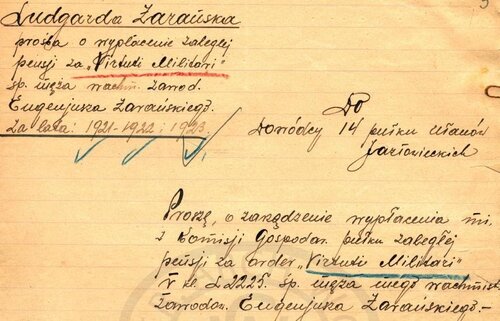 Ludgarda Żarańska
prośba o wypłacenie zaległej
pensji za „Virtuti Militari"
śp. męża wachm. zawod.
Eugenjusza Żarańskiego.
za lata: 1921-1922 i 1923
Do
Dowódcy 14 pułku Ułanów
Jazłowieckich
Proszę, o zarządzenie wypłacenia mi
z Komisji Gospodar. pułku zaległej
pensji za order „Virtuti Militari"
V kl. L 2225. śp. męża mego wachmist.
zawodow. Eugenjusza Żarańskiego.-